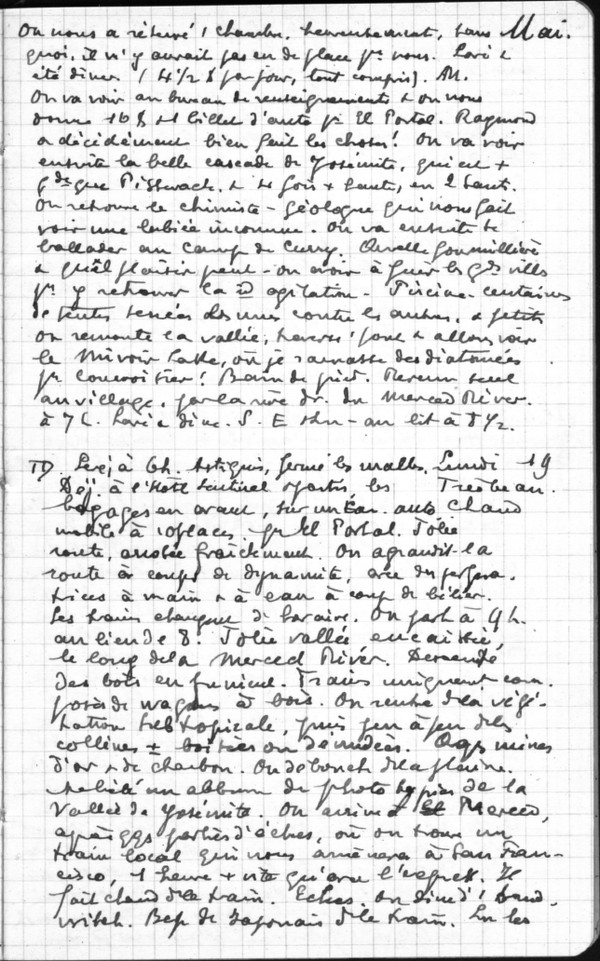 On nous a réservé 1 chambre, heureusement, sans Mai.
quoi, il n'y aurait pas eu de place pr nous. Lavé &
été diner. (4 1/2 $ par jour, tout compris). AM.
On va voir au bureau de renseignements & on nous
donne 16 $ & 1 billet d'auto pr El Portal. Raymond
a décidément bien fait les choses! On va voir
ensuite la belle cascade de Yosémite, qui est +
gde que Pissevach. & 4 fois + haute, en 2 sauts.
On retrouve le chimiste - géologue qui nous fait
voir une labiée inconnue. On va ensuite se
ballader au camp de Curry. Quelle fourmillière
& quel plaisir peut-on avoir à fuir les gdes villes
pr y retrouver la agitation - Piscine. centaines
de tentes serrées les unes contre les autres, & petits
on remonte la vallée, traverse 1 pont & allons voir
le Mirror Lake, où je ramasse des diatomées
pr Courvoisier! Bain de pied. Revenu seul
au village, par la rive dr. du Merced River.
à 7 h. Lavé & diné. S. E - au lit à 8 1/2.
TD. Levé à 6h. fermé les malles. Lundi 19
Déj. à l'Hôtel Sentinel & partis, les Très beau.
bagages en avant, sur un auto Chaud
mobile à 10 places pr El Portal. Jolie
route, arrosée fraîchement. On agrandit la
route à coups de dynamite, avec des perfora.
trices à main & à eau à coup de bélier.
Les trains changent d'horaire. On part à 9 h.
au lieu de 8. Jolie vallée encaissée,
le long de la Merced River. Descente
des bois en funicul. Trains uniquement com.
posés de wagons à bois. On rentre ds la végé-
tation subtropicale, puis peu à peu des
collines ± boisées ou dénudées. Qqs mines
d'or & de charbon. On débouche ds la plaine.
Acheté un album de photo de la
Vallée de Yosémite. On arrive à Merced,
après qqs perches d'échec, où on trouve un
train local qui nous amènera à San Fran-
cisco, 1 heure + vite qu'avec l'express. Il
fait chaud ds le train. Echecs. On dine d'1 sand-
witsch. Bcp de Japonais ds le train. Sur les